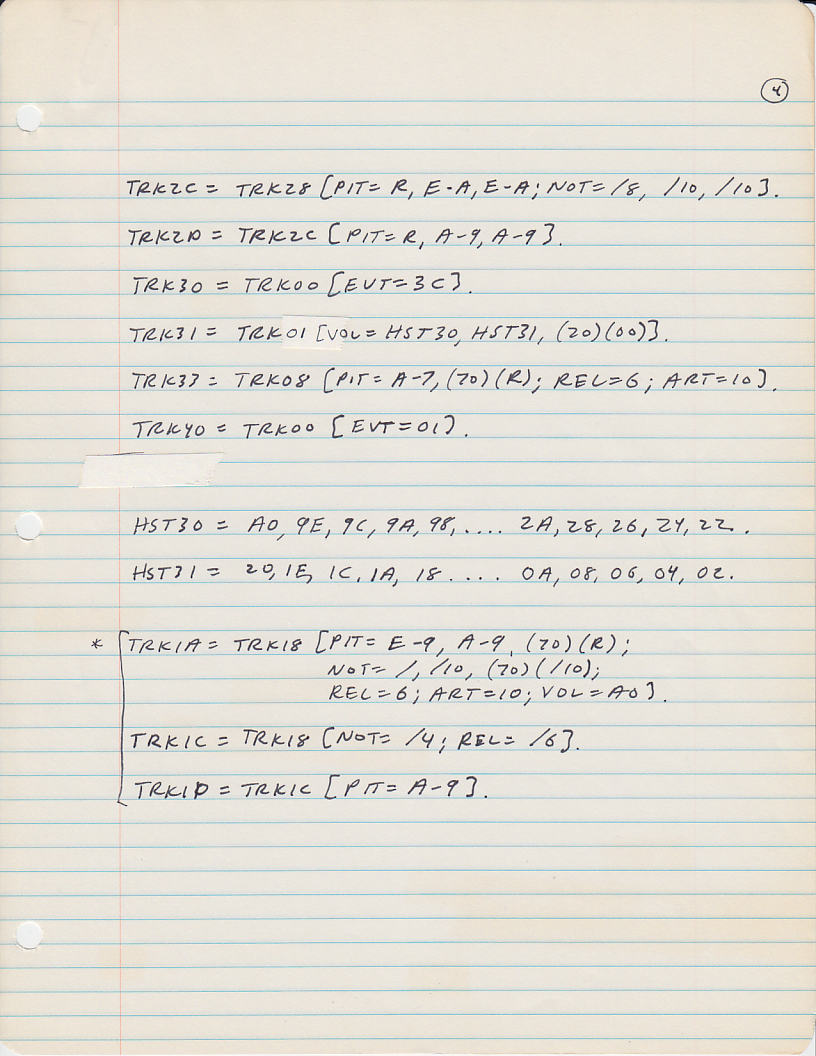 4
TRK2C = TRK28 [PIT= R, E-A, E-A; NOT= /8, /10, /10].
TRK2D = TRK2C [PIT=R, A-9, A-9].
TRK30 = TRK00 [EVT=3C].
TRK31 = TRK01 [VOL= HST30, HST31, (20)(00)].
TRK33 = TRK08 [PIT= A-7, (20)(R); REL=6; ART=10].
TRK40 = TRK00 [EVT=01].
HST30 = A0, 9E, 9C, 9A, 98, .... 2A, 28, 26, 24, 22.
HST31 = 20, 1E, 1C, 1A, 18 .... 0A, 08, 06, 04, 02.
* TRK1A = TRK18 [PIT= E-9, A-9, (20)(R);
NOT= /, /10, (20)(/10);
REL=6; ART=10; VOL=A0].
TRK1C = TRK18 [NOT= /4; REL= /6].
TRK1D = TRK1C [PIT= A-9].